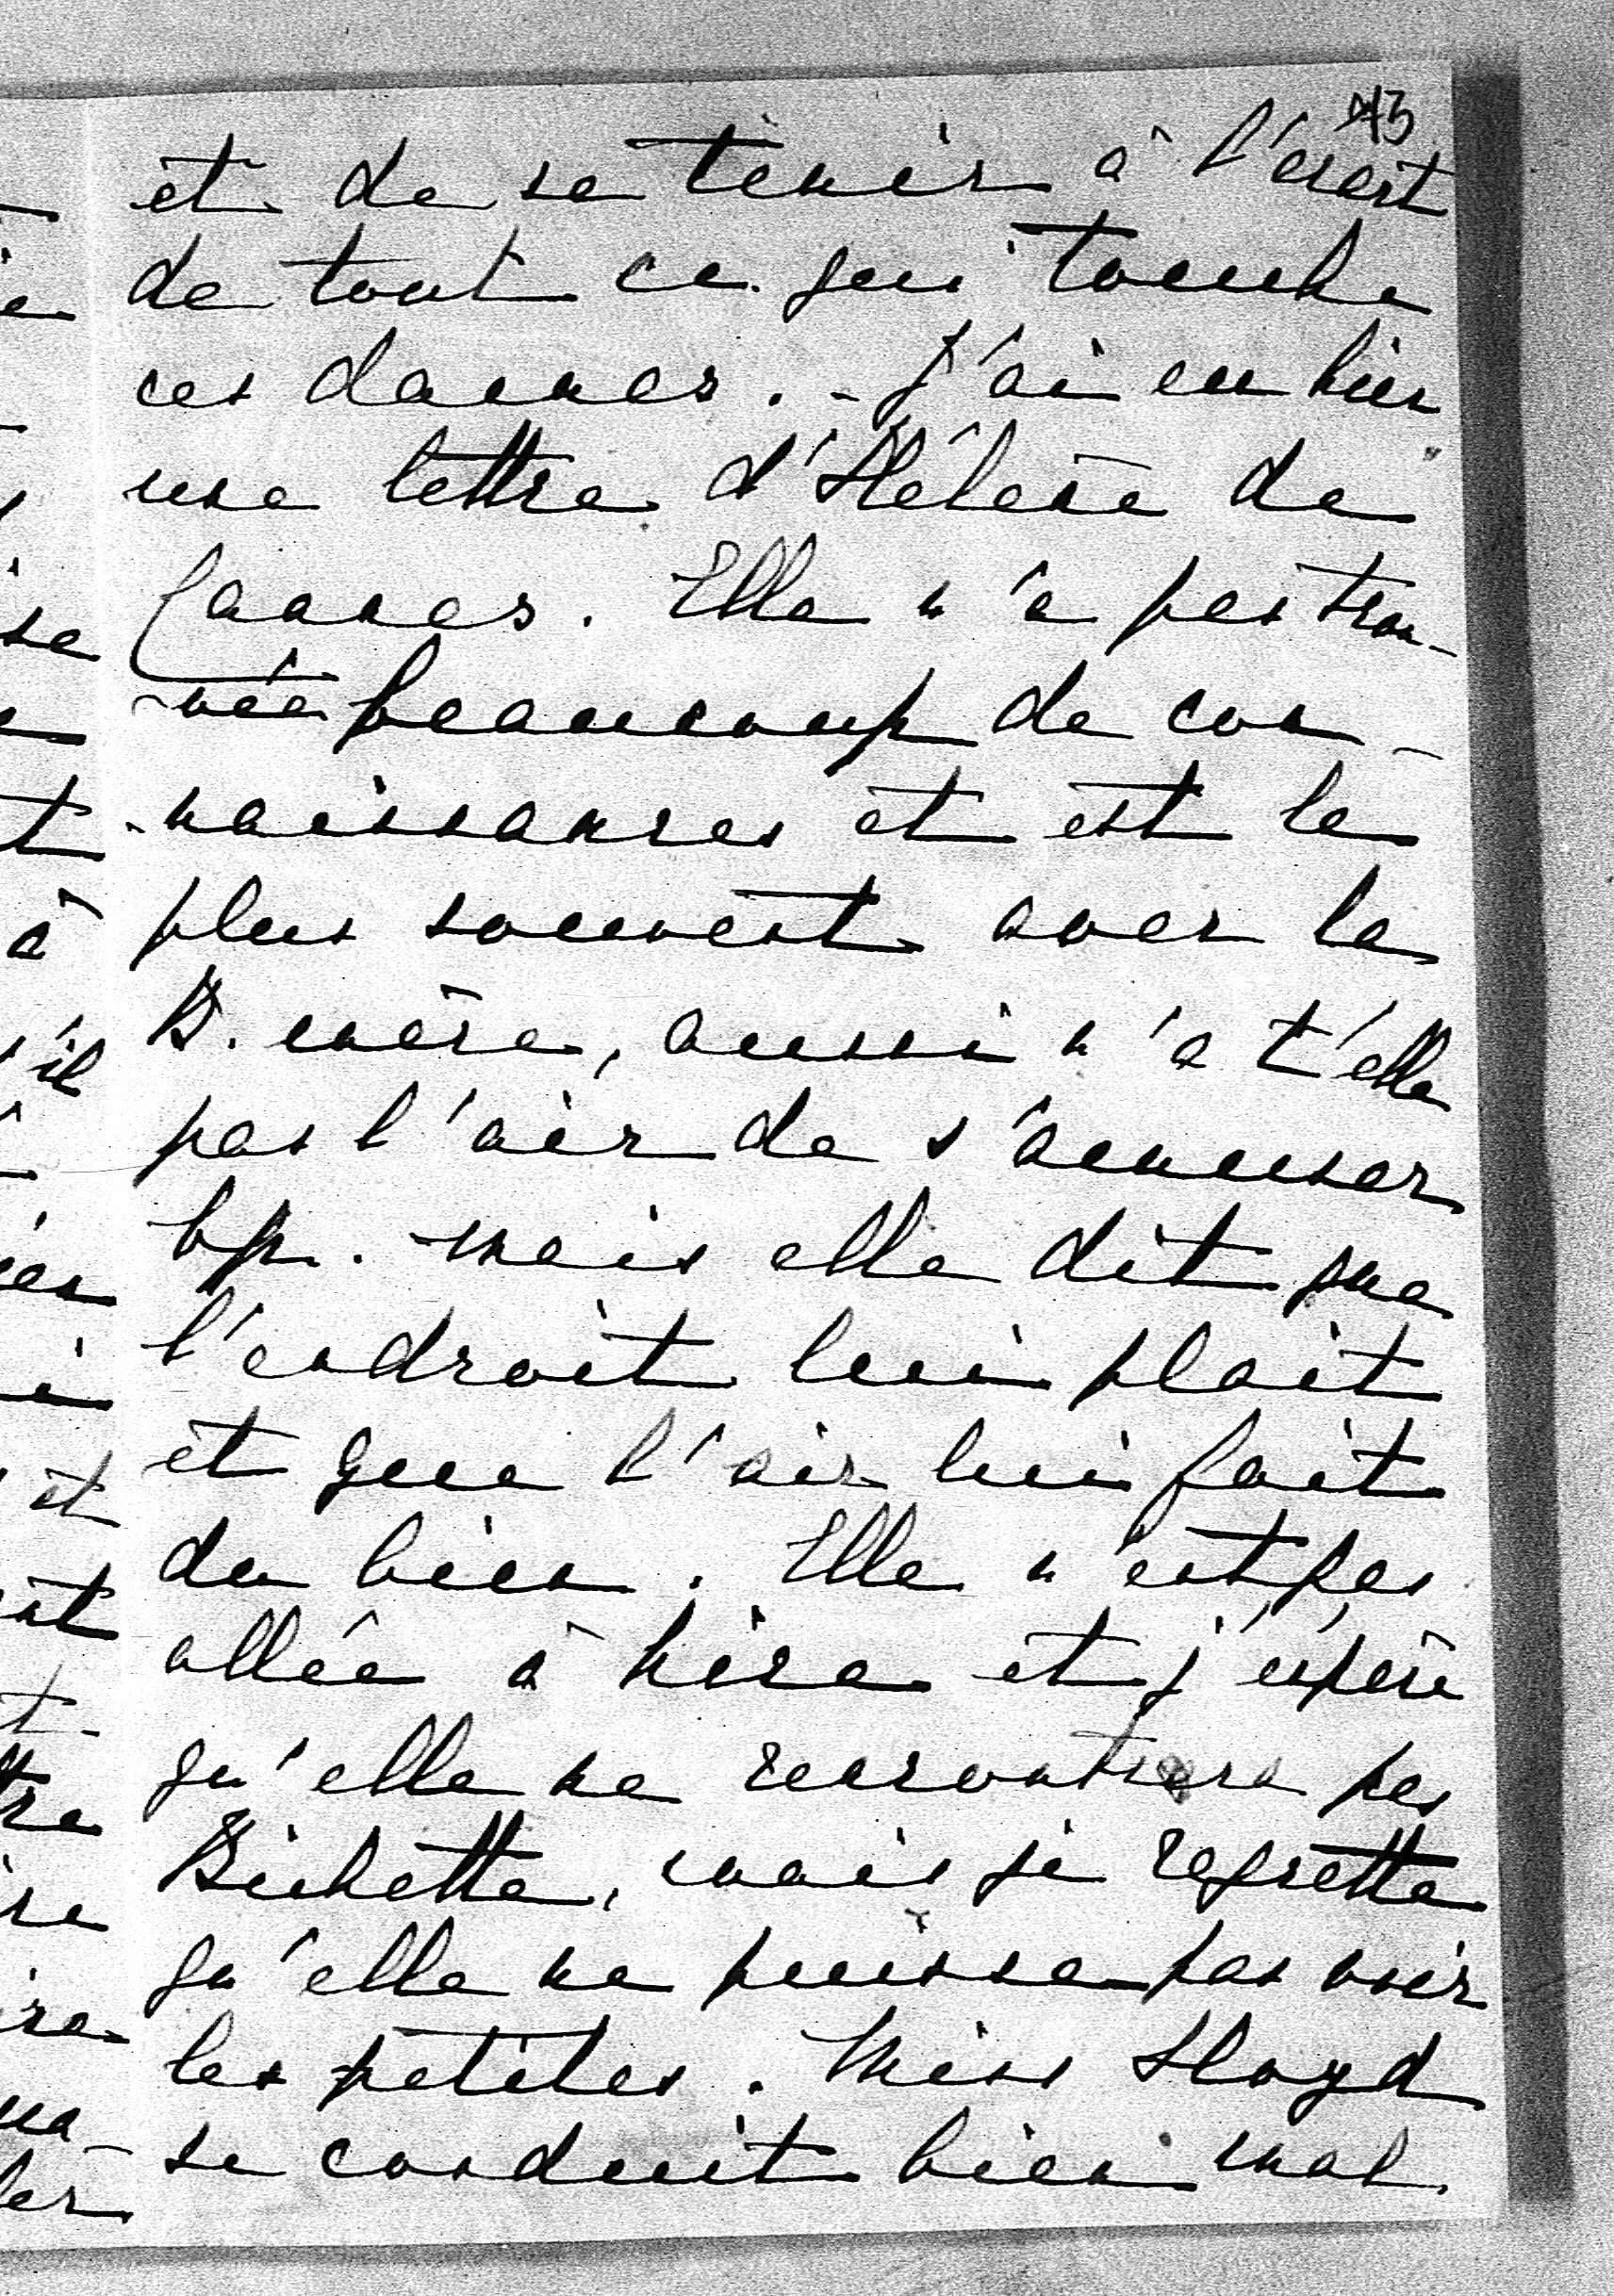 43
et de se tenir à l'écart
de tout ce qui touche
ces dames. - J'ai eu hier
une lettre d'Hélène de
Cannes. Elle n'a pas trou-
-vée beaucoup de con-
-naissances et est le
plus souvent avec la
B. mère, aussi n'a t'elle
pas l'air de s'amuser
bp. mais elle dit que
l'endroit lui plait
et que l'air lui fait
du bien. Elle n'est pas
allée à Nice et j'espère
qu'elle ne rencontrera pas
Bichette, mais je regrette
qu'elle ne puisse pas voir
les petites. Miss Lloyd
se conduit bien mal.